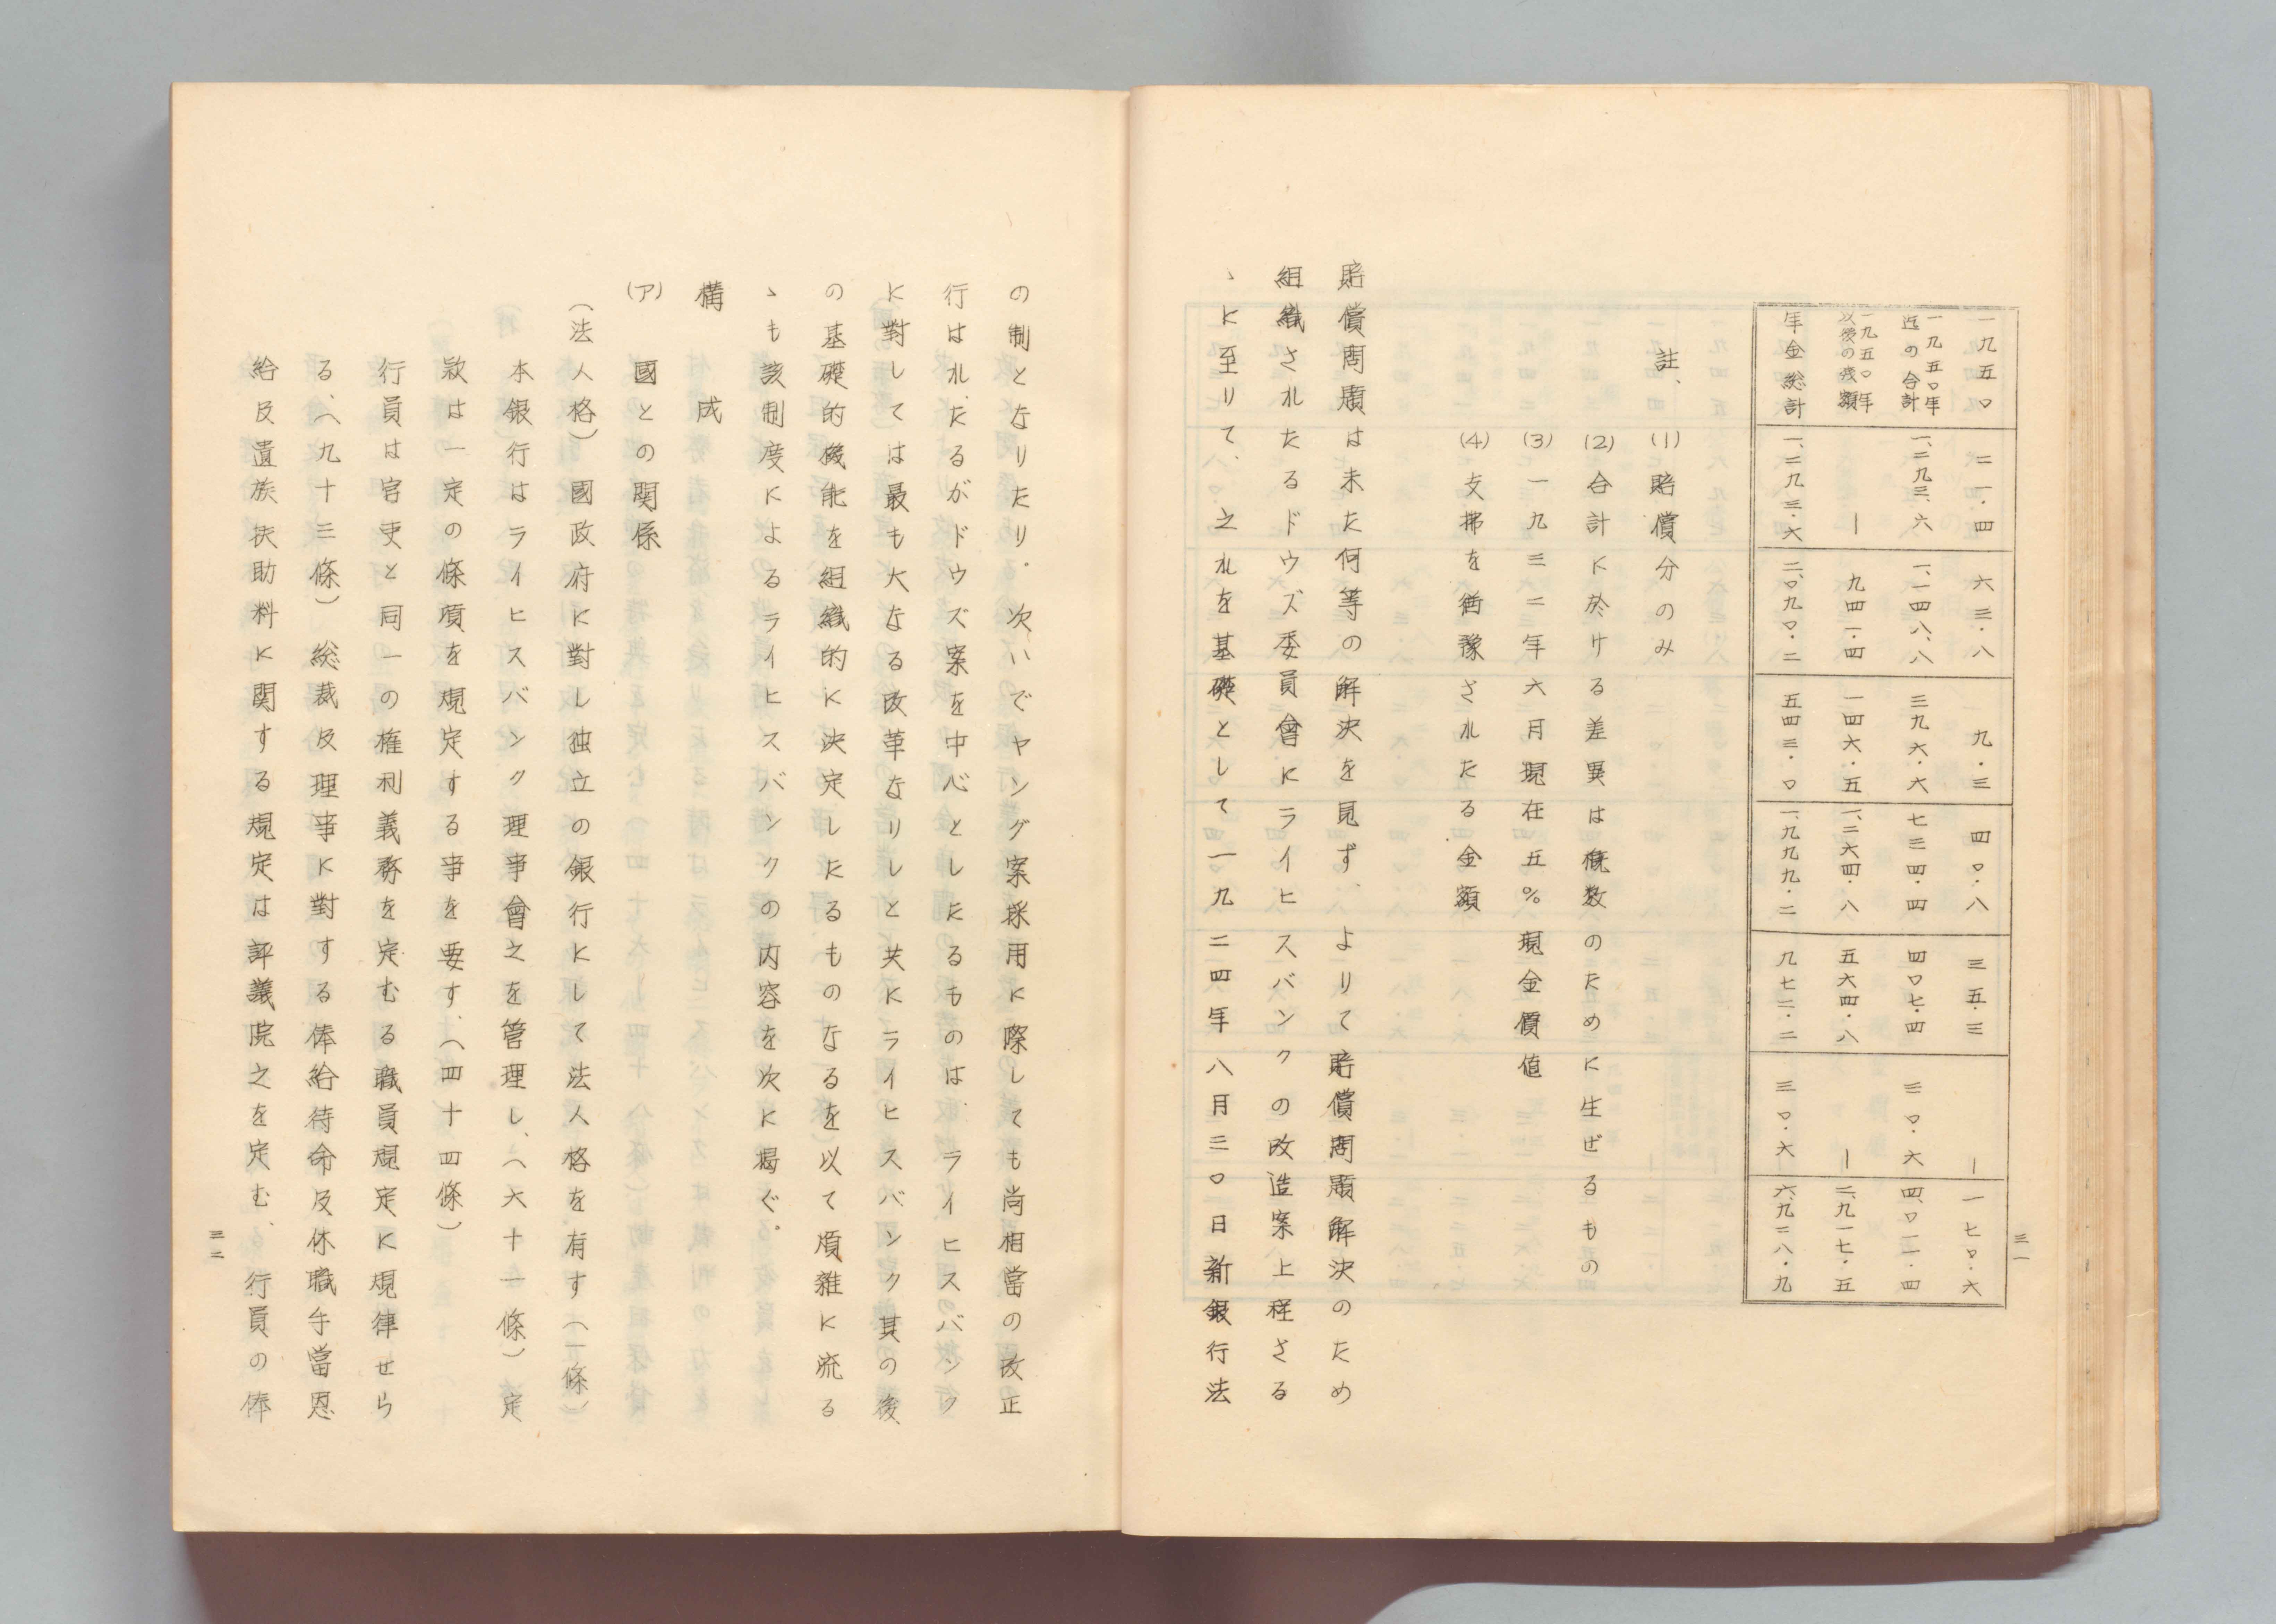 三一
一九五〇 二一・四 六三・八 九・三 四〇・八 三五・三 ー 一七〇・六
一九五〇年迄の合計 一、二九三、六 一、一四八、八 三九六・六 七三四・四 四〇七・四 三〇・六 四、〇一一・四
一九五〇年以後の残額 ー 九四一・四 一四六・五 一、二六四・八 五六四・八 ー 二、九一七・五
年金総計 一、二九三・六 二、〇九〇・二 五四三・〇 一、九九九・二 九七二・二 三〇・六 六、九二八・九
註、 (1) 賠償分のみ
(2) 合計に於ける差異は概数のために生ぜるもの
(3) 一九三二年六月現在五% 現金價値
(4) 支拂を猶豫されたる金額
賠償問題は未た何等の解決を見ず、よりて賠償問題解決のため
組織されたるドウズ委員會にライヒスバンクの改造案上程さる
ゝに至りて、之れを基礎として一九二四年八月三〇日新銀行法
の制となりたり。次いでヤング案採用に際しても尚相當の改正
行はれたるがドウズ案を中心としたるものは、ライヒスバンク
に對しては最も大なる改革なりしと共にライヒスバンク其の後
の基礎的機能を組織的に決定したるものなるを以て煩雜に流る
ゝも該制度によるライヒスバンクの内容を次に揭ぐ。
構 成
(ア) 國との関係
(法人格) 國政府に對し独立の銀行にして法人格を有す(一條)
本銀行はライヒスバンク理事會之を管理し、(六十一條) 定
款は一定の條項を規定する事を要す、(四十四條)
行員は官吏と同一の権利義務を定むる職員規定に規律せら
る、(九十三條) 総裁及理事に對する俸給待命及休職手當恩
給及遺族扶助料に関する規定は評議院之を定む、行員の俸
三二